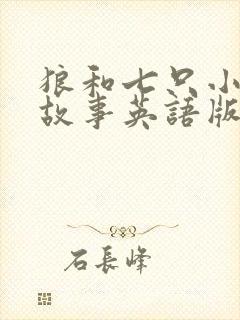 狼和七只小
故事英語版
石長峰